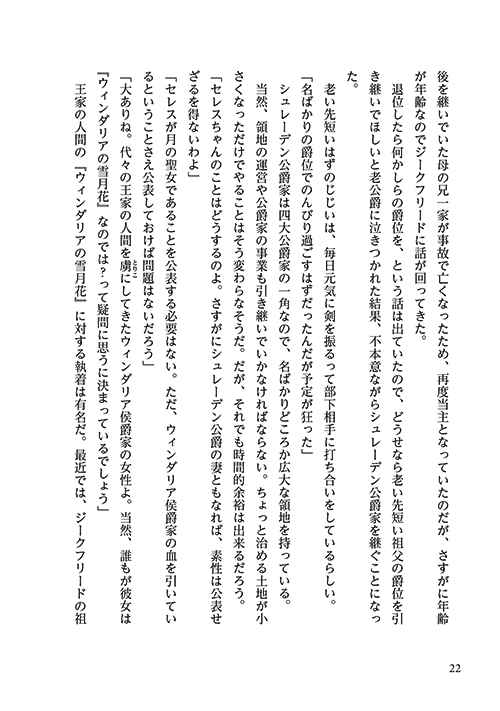 後を継いでいた母の兄一家が事故で亡くなったため、再度当主となっていたのだが、さすがに年齢
が年齢なのでジークフリードに話が回ってきた。
退位したら何かしらの爵位を、という話は出ていたので、どうせなら老い先短い祖父の爵位を引
き継いでほしいと老公爵に泣きつかれた結果、不本意ながらシュレーデン公爵家を継ぐことになっ
た。
老い先短いはずのじじいは、毎日元気に剣を振るって部下相手に打ち合いをしているらしい。
「名ばかりの爵位でのんびり過ごすはずだったんだが予定が狂った」
シュレーデン公爵家は四大公爵家の一角なので、名ばかりどころか広大な領地を持っている。
当然、領地の運営や公爵家の事業も引き継いでいかなければならない。ちょっと治める土地が小
さくなっただけでやることはそう変わらなそうだ。だが、それでも時間的余裕は出来るだろう。
「セレスちゃんのことはどうするのよ。さすがにシュレーデン公爵の妻ともなれば、素性は公表せ
ざるを得ないわよ」
「セレスが月の聖女であることを公表する必要はない。ただ、ウィンダリア侯爵家の血を引いてい
るということさえ公表しておけば問題はないだろう」
「大ありね。代々の王家の人間を虜にしてきたウィンダリア侯爵家の女性よ。当然、誰もが彼女は
『ウィンダリアの雪月花』なのでは？って疑問に思うに決まっているでしょう」
王家の人間の『ウィンダリアの雪月花』に対する執着は有名だ。最近では、ジークフリードの祖
とりこ
22